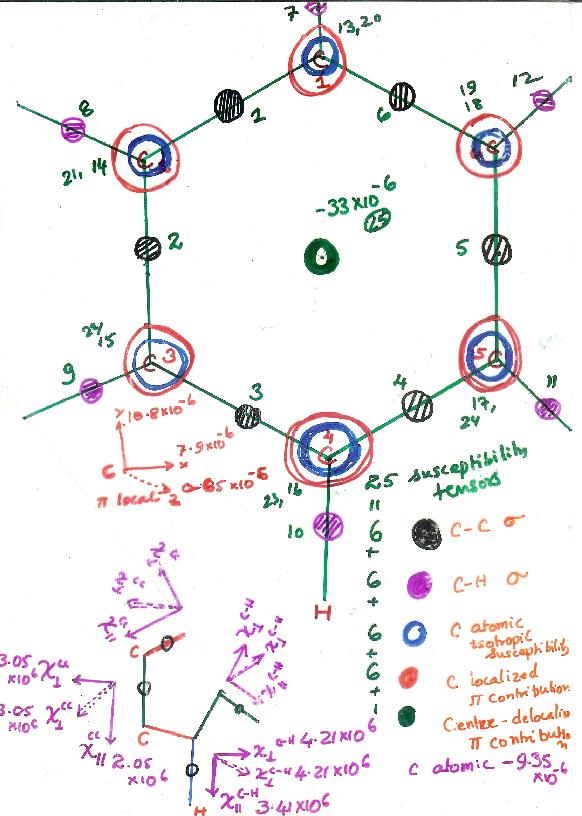 7
13,20
C
1
8
1
6
19
18
12
C
C
21, 14
-33×10⁻⁶
25
2
5
24/15
C 3
C 5
9
3
4
11
17,
24
4
C
Y 10.8×10⁻⁶
7.9×10⁻⁶
X
C
π local
Z
23, 16
10
H
25 susceptibility
tensors
=
6
+
6
+
6
+
6
+
1
C-C σ
C-H σ
C atomic
isotropic
susceptibility
C localized
π contribution
Center-delocaliz
π contribution
C atomic -9.35
×10⁻⁶
C
C
H
3.05
×10⁶ χ⊥ᶜᶜ
3.05
×10⁶ χ⊥ᶜᶜ
χ||ᶜᶜ 2.05
×10⁶
χ⊥ᶜ⁻ᴴ 4.21×10⁶
χ⊥ᶜ⁻ᴴ 4.21×10⁶
χ||ᶜ⁻ᴴ 3.41×10⁶